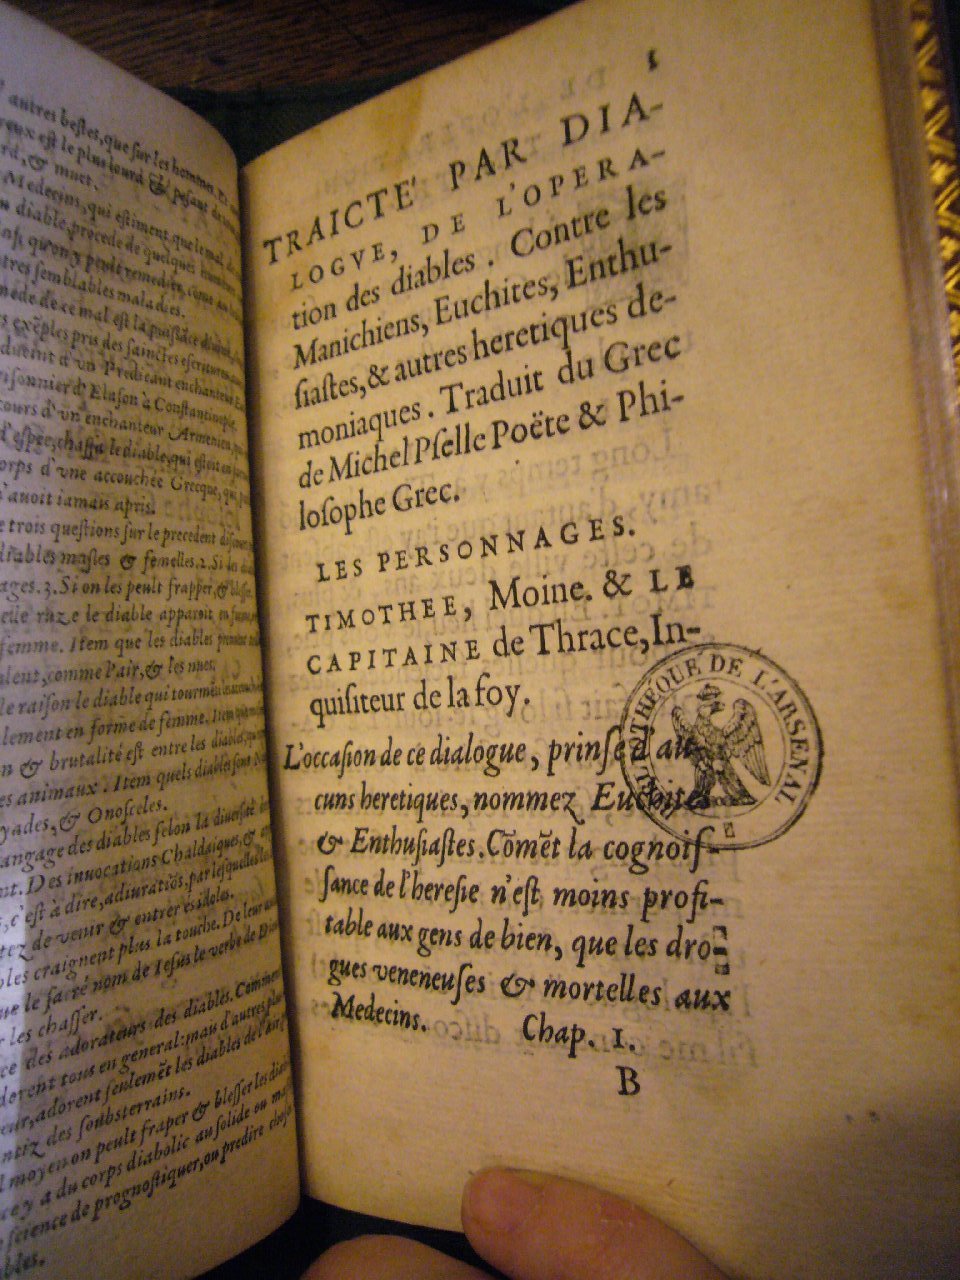 autres bestes, que sur les hommes. Et
reux est le plus lourd & pesant de
rd, & muet.
Medecins, qui estiment que le mal du
diable, procede de quelques humeurs
qu'on y peult remedier, côme au
tres semblables malades.
mede de ce mal est la puissãce diuine,
exẽples pris des sainctes escritures,
duient à vn Predicant enchanteur
risonnier d'Elason à Constantinople.
cours d'vn enchanteur Armenien, qui
d'espee, chassa le diable, qui estoit en
corps d'vne accouchée Grecque, qui
n'auoit iamais apris.
e trois questions sur le precedent discours,
diables masles & femelles. 2. Si les
ages. 3. Si on les peult frapper, & blesser.
elle ruze le diable apparoit en
femme. Item que les diables
lent, comme l'air, & les nues.
le raison le diable qui tourmẽtoit
lement en forme de femme. Item
n & brutalité est entre les diables,
es animaux. Item quels diables sont
yades, & Onosceles.
angage des diables selon la diuersité
Des inuocations Chaldaiques, &
c'est à dire, adiuratiõs, par lesquelles
tez de venir & entrer és idoles.
les craignent plus la touche. De leur
ue le sacré nom de Iesus le verbe de Dieu
les chasser.
ce des adorateurs des diables. Comment
dorent tous en general: mais d'autres plus
eur, adorent seulemẽt les diables de l'air,
ntiz des soubsterrains.
l moyen on peult fraper & blesser les diables
ce y a du corps diabolic au solide ou
science de prognostiquer, ou predire choses
bles.
1
TRAICTE' PAR DIA-
LOGVE, DE L'OPERA-
tion des diables. Contre les
Manichiens, Euchites, Enthu-
siastes, & autres heretiques de-
moniaques. Traduit du Grec
de Michel Pselle Poëte & Phi-
losophe Grec.
LES PERSONNAGES.
TIMOTHEE, Moine. & LE
CAPITAINE de Thrace, In-
quisiteur de la foy.
L'occasion de ce dialogue, prinse d'au-
cuns heretiques, nommez Euchites
& Enthusiastes. Cõmẽt la cognois-
sance de l'heresie n'est moins profi-
table aux gens de bien, que les dro-
gues veneneuses & mortelles aux
Medecins. Chap. 1.
B
BIBLIOTHÉQUE DE L'ARSENAL